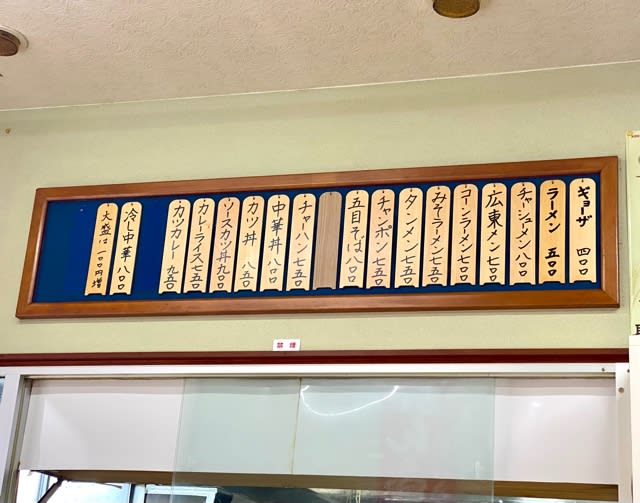 ギョーザ 四〇〇
ラーメン 五〇〇
チャーシュメン 八〇〇
広東メン 七〇〇
コーンラーメン 七〇〇
みそラーメン 七五〇
タンメン 七五〇
チャンポン 七五〇
五目そば 八〇〇
チャーハン 七五〇
中華丼 八〇〇
カツ丼 八五〇
ソースカツ丼 九〇〇
カレーライス 七五〇
カツカレー 九五〇
冷し中華 八〇〇
大盛は 一〇〇円増
禁煙